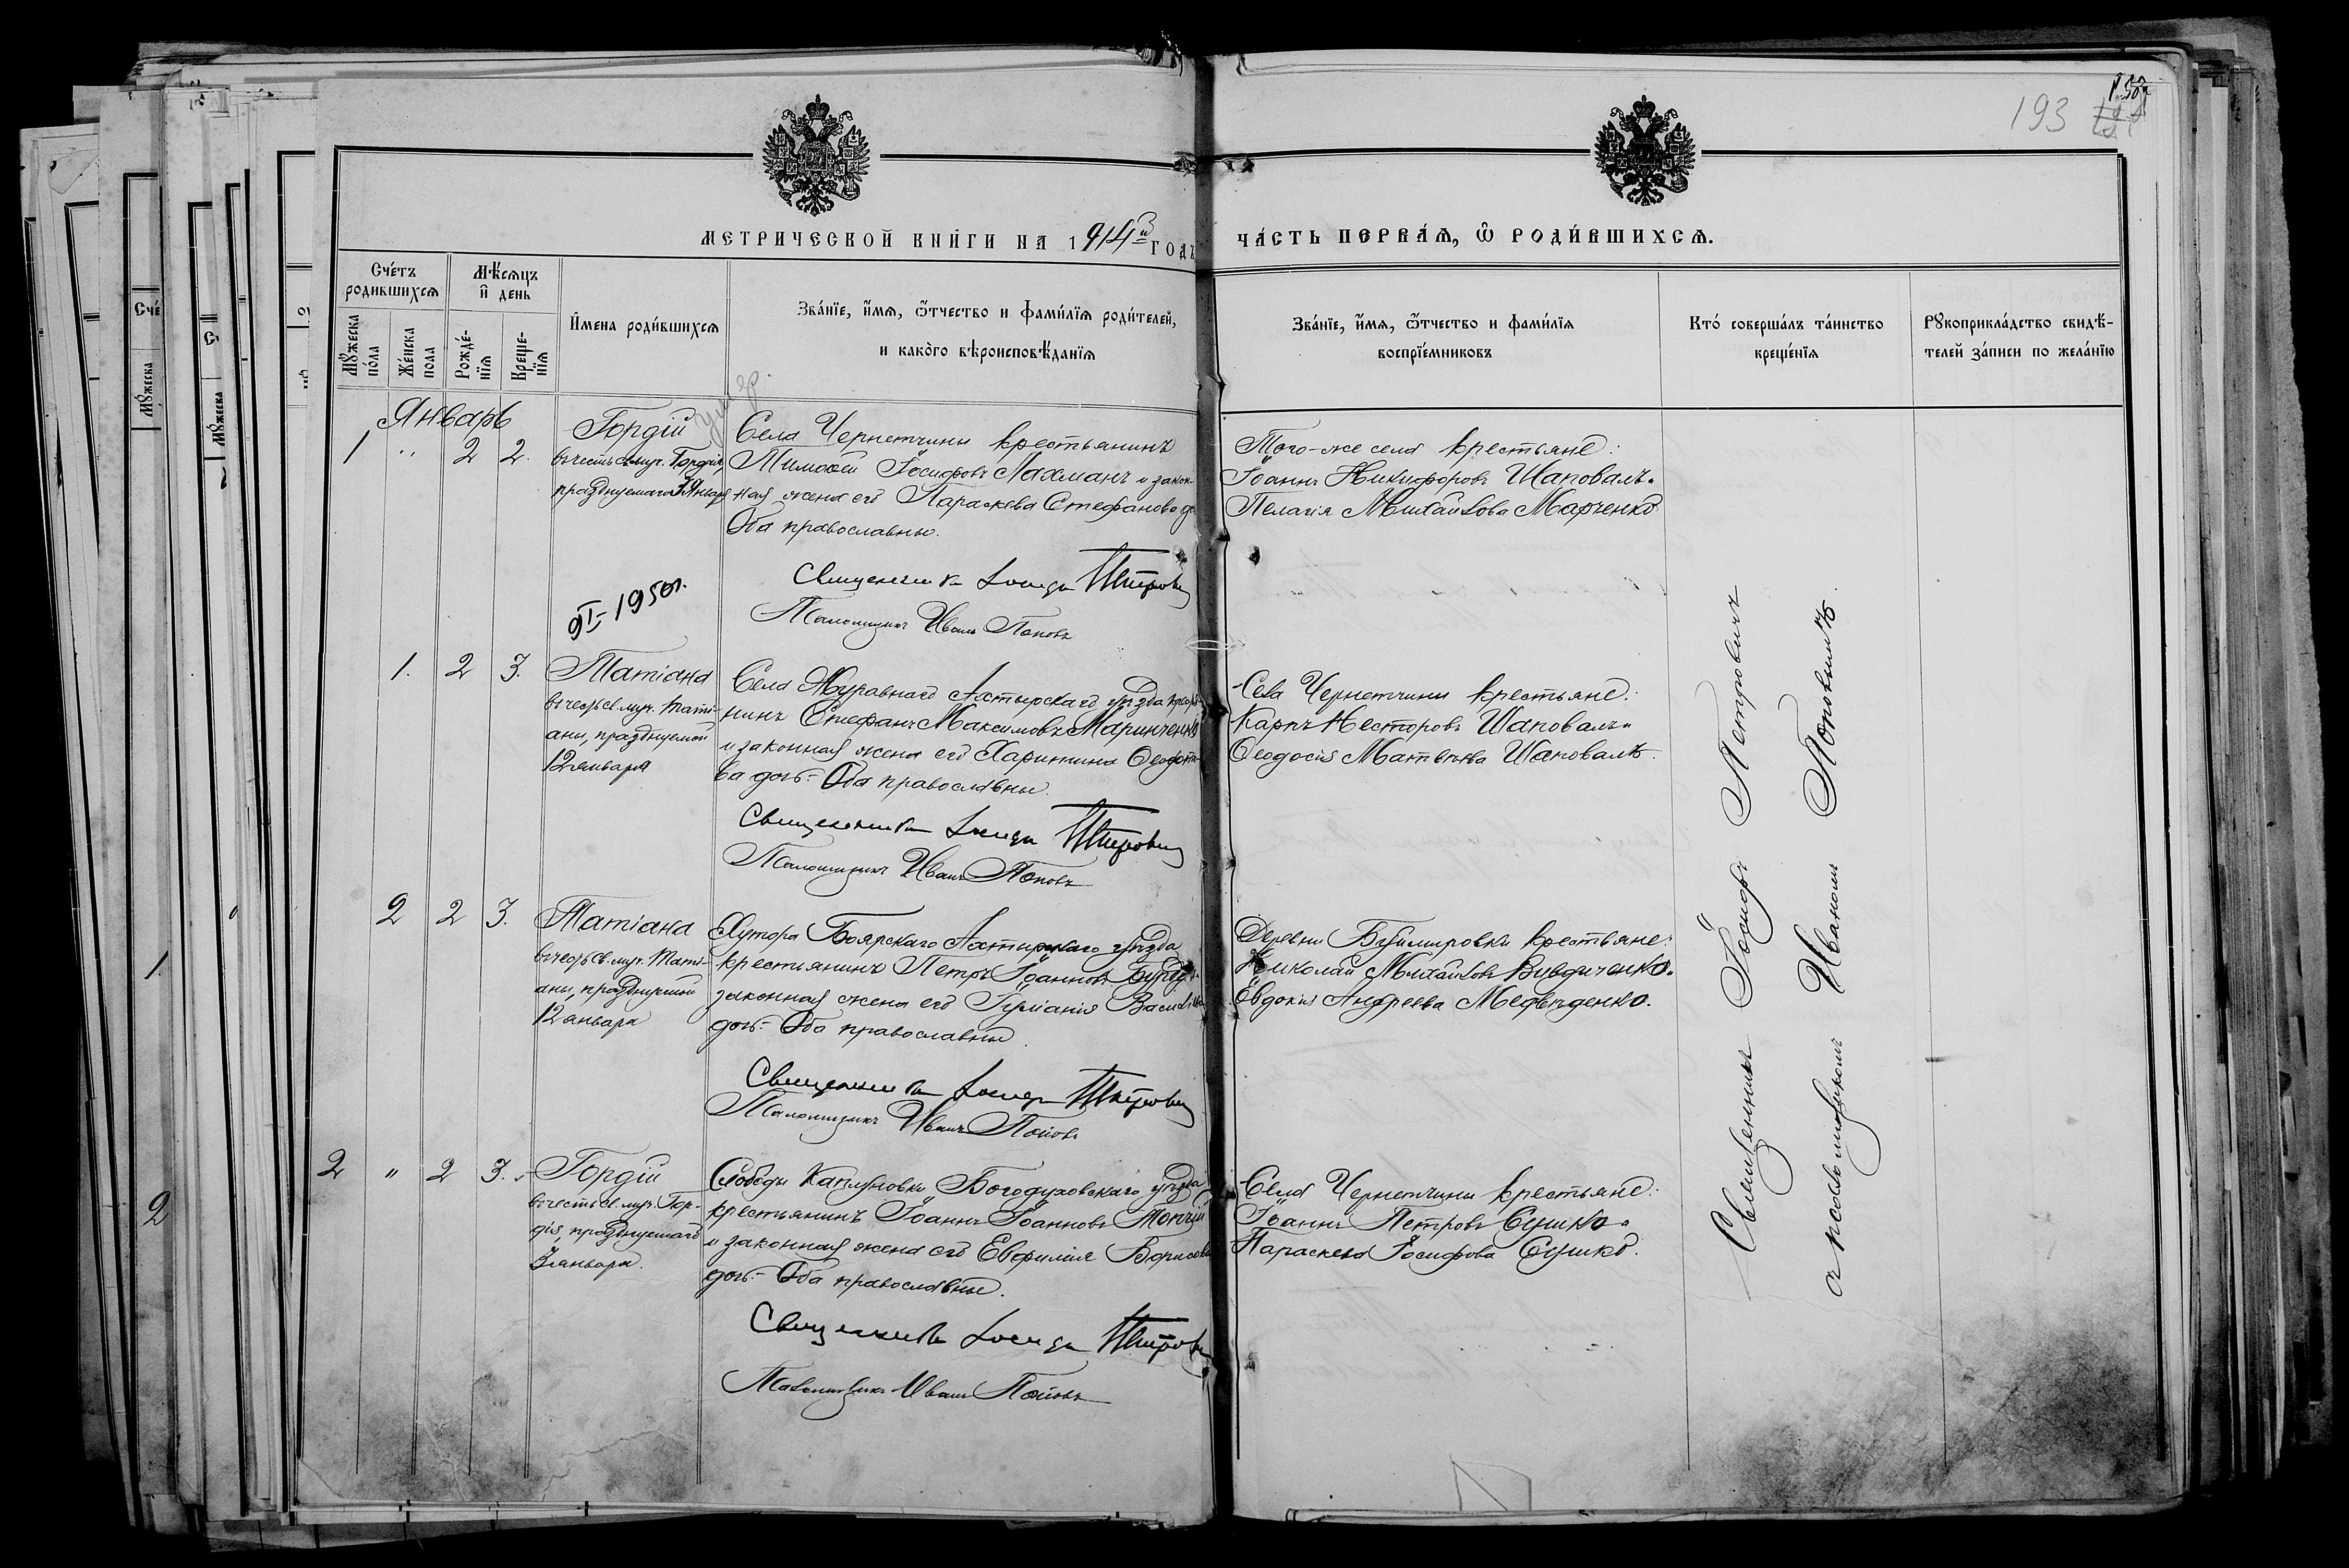 193
МЕТРИЧЕСКОЙ КНИГИ НА 1914й ГОДЪ
ЧАСТЬ ПЕРВАЯ, Ѡ РОДИВШИХСЯ.
Счетъ родившихся
Мѣсяцъ и день
Мужеска пола
Женска пола
Рожденія
Крещенія
Имена родившихся
Званіе, имя, отчество и фамилія родителей,
и какого вѣроисповѣданія
Званіе, имя, отчество и фамилія
воспріемниковъ
Кто совершалъ таинство
крещенія
Рукоприкладство свидѣ-
телей записи по желанію
Январь
1 " 2 2.
Гордій
въ честь св. муч. Гордія,
празднуемаго 3 Января
Села Чернетчины крестьянинъ
Тимоѳей Іосифовъ Лахманъ и закон-
ная жена его Параскева Стефанова
Оба православны.
Священникъ Іосифъ Петровичъ
Псаломщикъ Иванъ Поповъ
Того-же села крестьяне:
Іоаннъ Никифоровъ Шаповалъ.
Пелагія Михайлова Марченко
9/I-1950г.
1. 2 3.
Татіана
въ честь св. муч. Тати-
аны, празднуемой
12 января
Села Журавнаго Ахтырскаго уѣзда кресть-
нинъ Стефанъ Максимовъ Маринченко
и законная жена его Харитина
ва дочь. Оба православны.
Священникъ Іосифъ Петровичъ
Псаломщикъ Иванъ Поповъ
Села Чернетчины крестьяне:
Карпъ Несторовъ Шаповалъ
Ѳеодосія Матвѣева Шаповалъ.
2 2 3.
Татіана
въ честь св. муч. Тати-
аны, празднуемой
12 января
Хутора Боярскаго Ахтырскаго уѣзда
крестьянинъ Петръ Іоанновъ
законная жена его Іуліанія Васильева
дочь. Оба православны.
Священникъ Іосифъ Петровичъ
Псаломщикъ Иванъ Поповъ
Деревни крестьяне:
Николай Михайловъ
Евдокія Андреева Медвѣденко.
2 " 2 3.
Гордій
въ честь св. муч. Гор-
дія, празднуемаго
3 января.
Слободы Каплуновки Богодуховскаго уѣзда
крестьянинъ Іоаннъ Іоанновъ Топчій
и законная жена его Евфимія Борисова
дочь. Оба православны.
Священникъ Іосифъ Петровичъ
Псаломщикъ Иванъ Поповъ
Села Чернетчины крестьяне:
Іоаннъ Петровъ Сушко.
Параскева Іосифова Сушко.
Священникъ Іосифъ Петровичъ
с псаломщикомъ Иваномъ Поповымъ.
1
2